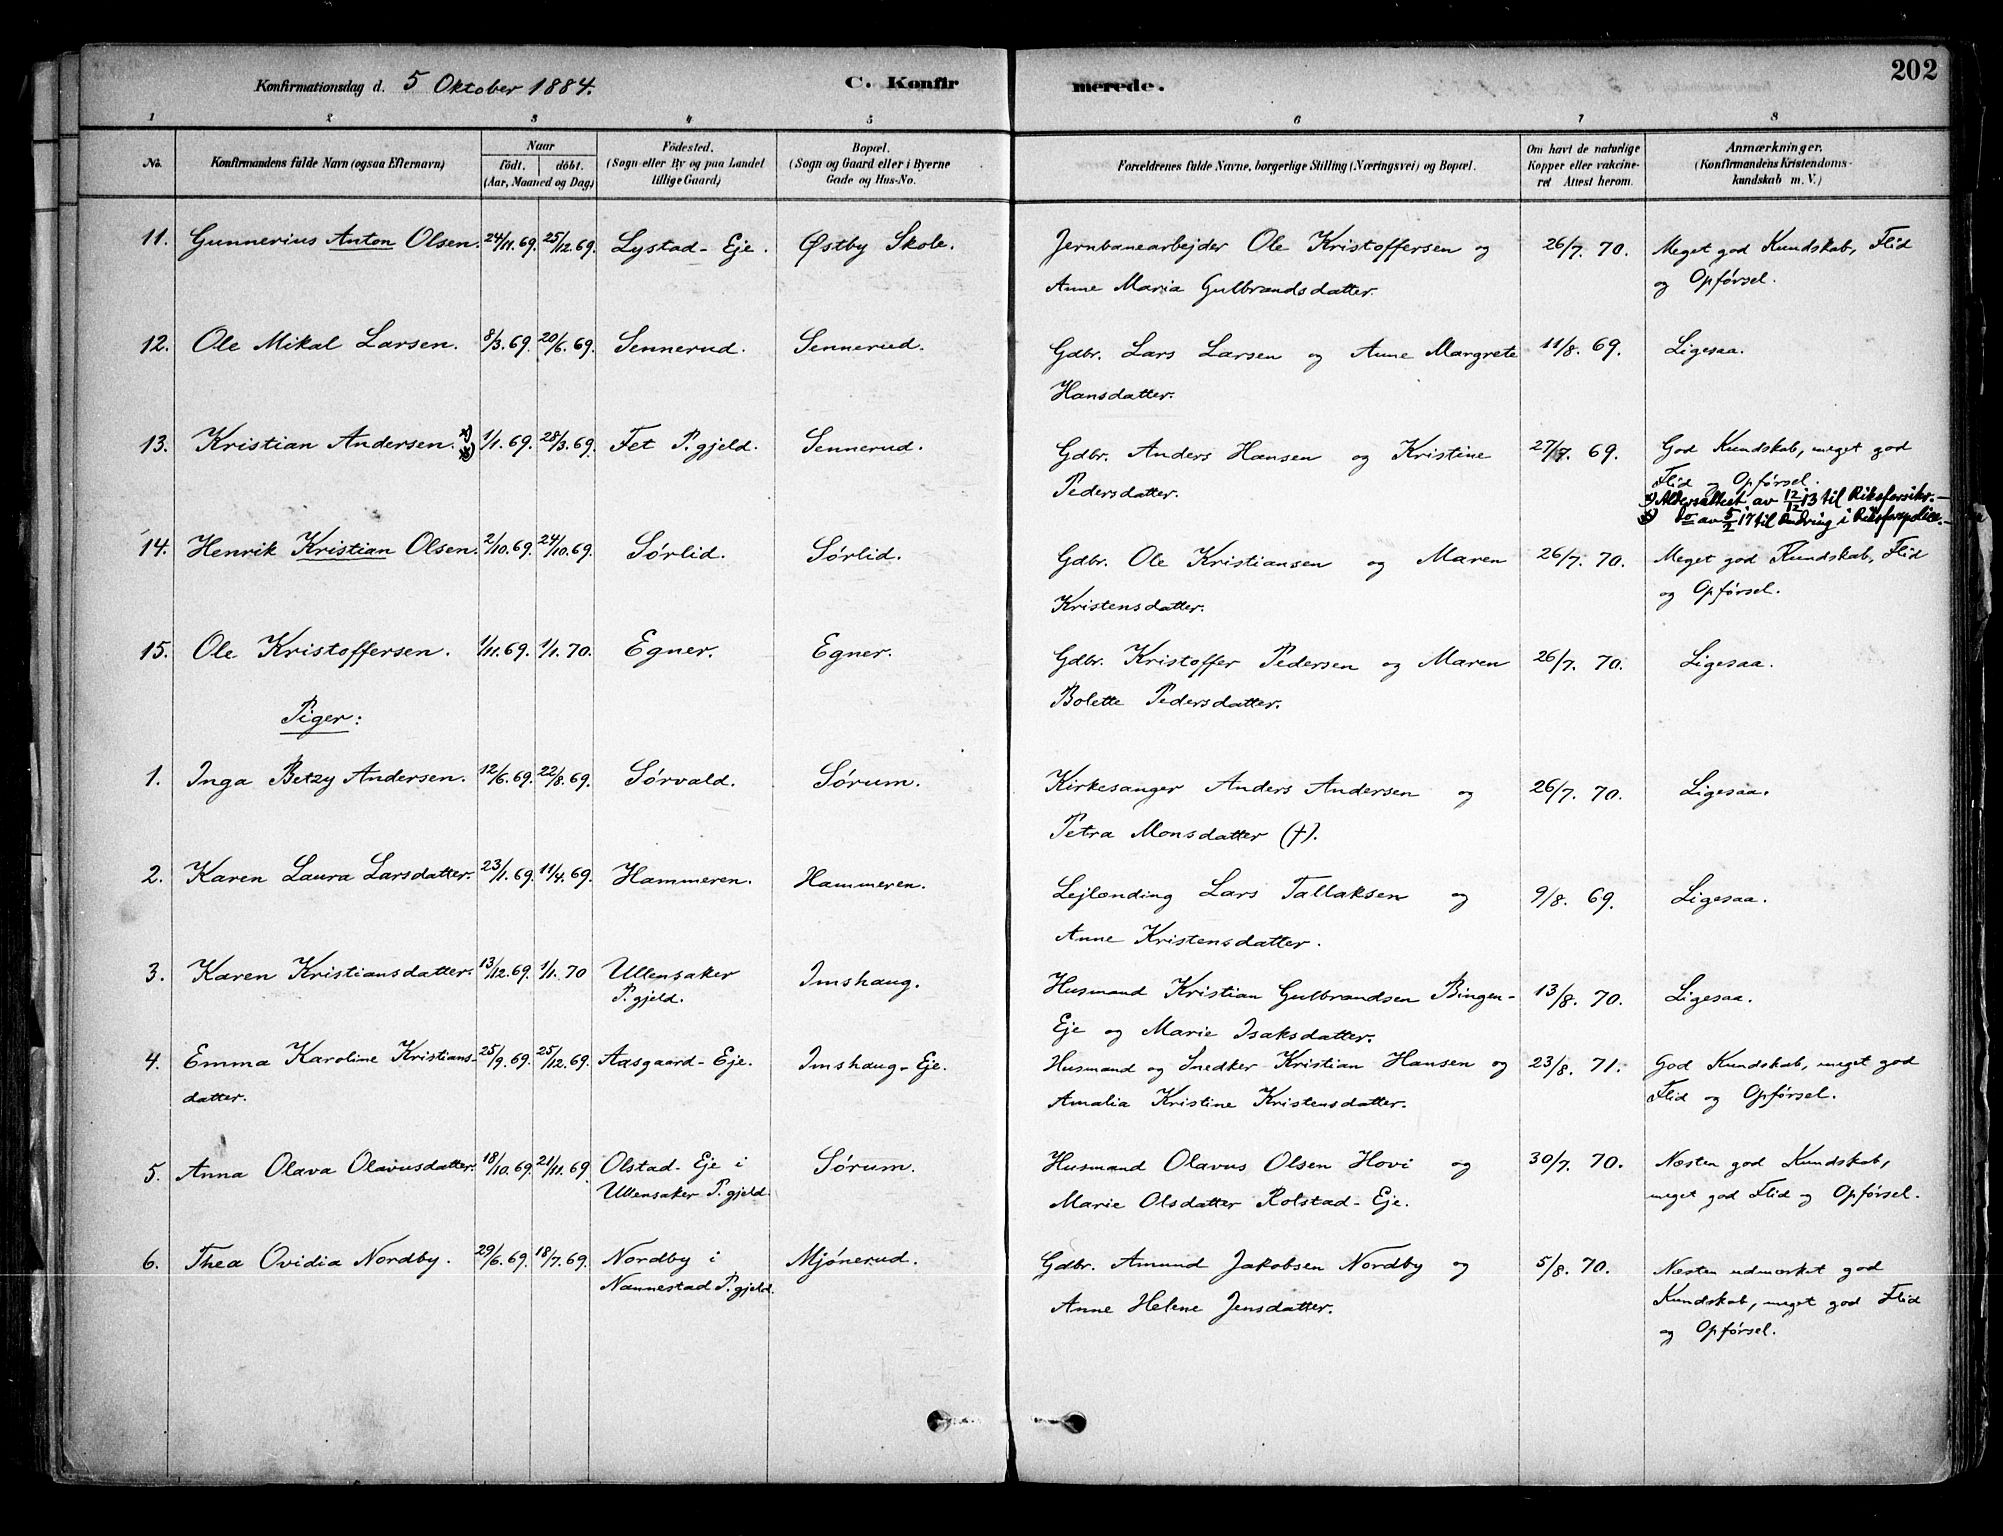 Konfirmationsdag d. 5 Oktober 1884.
C. Konfirmerede.
202
1 2 3 4 5 6 7 8
No.
Konfirmandens fulde Navn (ogsaa Efternavn)
Naar
födt. döbt.
(Aar, Maaned og Dag)
Födested.
(Sogn eller By og paa Landet
tillige Gaard)
Bopæl.
(Sogn og Gaard eller i Byerne
Gade og Hus-No.
Forældrenes fulde Navne, borgerlige Stilling (Næringsvei) og Bopæl.
Om havt de naturlige
Kopper eller vakcine-
ret Attest herom.
Anmærkninger.
(Konfirmandens Kristendoms-
kundskab m. V.)
11. Gunnerius Anton Olsen. 24/11.69. 25/12.69. Lystad-Eje. Østby Skole. Jernbanearbejder Ole Kristoffersen og 26/7. 70. Meget god Kundskab, Flid
Anne Maria Gulbrandsdatter. og Opførsel.
12. Ole Mikal Larsen. 8/3.69. 20/6.69. Sennerud. Sennerud. Gdbr. Lars Larsen og Anne Margrete 11/8. 69. Ligesaa.
Hansdatter.
13. Kristian Andersen. 1/1.69. 28/3.69. Fet P.gjeld. Sennerud. Gdbr. Anders Hansen og Kristine 27/7. 69. God Kundskab, meget god
Pedersdatter. Flid og Opførsel.
Aldersattest av 12/12 13 til Riksforsikr.
do av 5/2 17 til Endring i
14. Henrik Kristian Olsen. 2/10.69. 24/10.69. Sørlid. Sørlid. Gdbr. Ole Kristiansen og Maren 26/7. 70. Meget god Kundskab, Flid
Kristensdatter. og Opførsel.
15. Ole Kristoffersen. 1/11.69. 1/1.70. Egner. Egner. Gdbr. Kristoffer Pedersen og Maren 26/7. 70. Ligesaa.
Bolette Pedersdatter.
Piger:
1. Inga Betzy Andersen. 12/6.69. 22/8.69. Sørvald. Sørum. Kirkesanger Anders Andersen og 26/7. 70. Ligesaa.
Petra Monsdatter (†).
2. Karen Laura Larsdatter. 23/1.69. 11/4.69. Hammeren. Hammeren. Lejlænding Lars Tallaksen og 9/8. 69. Ligesaa.
Anne Kristensdatter.
3. Karen Kristiansdatter. 13/12.69. 1/1.70 Ullensaker Imshaug. Husmand Kristian Gulbrandsen Bingen- 13/8. 70. Ligesaa.
P.gjeld. Eje og Marie Isaksdatter.
4. Emma Karoline Kristians- 25/9.69. 25/12.69. Aasgaard-Eje. Imshaug-Eje. Husmand og Snedker Kristian Hansen og 23/8. 71. God Kundskab, meget god
datter. Amalia Kristine Kristensdatter. Flid og Opførsel.
5. Anna Olava Olavusdatter. 18/10.69. 21/11.69. Olstad-Eje i Sørum. Husmand Olavus Olsen Hovi og 30/7. 70. Næsten god Kundskab,
Ullensaker P.gjeld. Marie Olsdatter Rolstad-Eje. meget god Flid og Opførsel.
6. Thea Ovidia Nordby. 29/6.69. 18/7.69. Nordby i Mjønerud. Gdbr. Amund Jakobsen Nordby og 5/8. 70. Næsten udmærket god
Nannestad P.gjeld. Anne Helene Jensdatter. Kundskab, meget god Flid
og Opførsel.